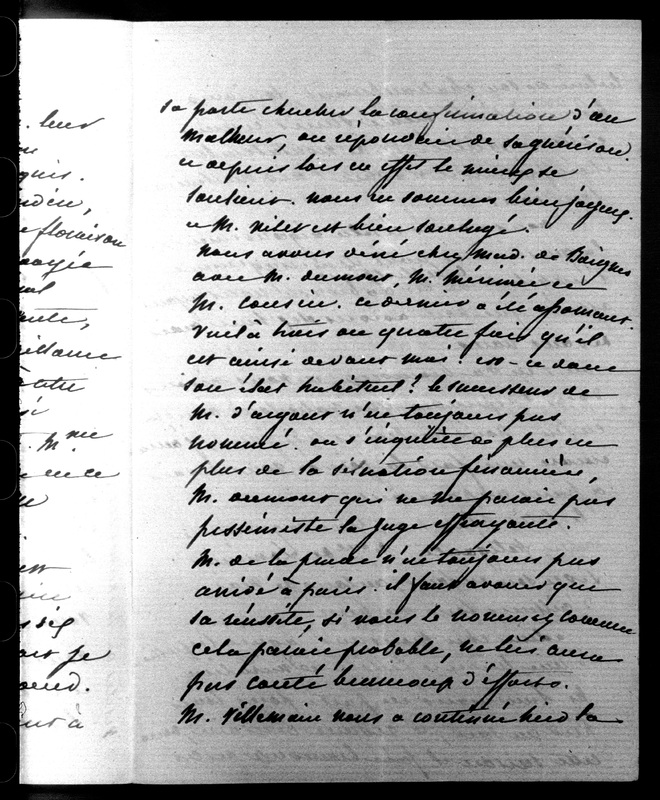 sa porte chercher la confirmation d'un
malheur, on répondait de sa guérison.
et depuis lors en effet le mieux se
soutient. nous en sommes bien joyeux.
et M. Vitet est bien soulagé.
nous avons diné chez Mad. de Boigne
avec M. dumont, M. mérimée et
M. cousin. ce dernier a été assommant.
Voilà trois ou quatre fois qu'il
est ainsi devant moi. est-ce donc
son état habituel? le successeur de
M. d'argout n'est toujours pas
nommé. on s'inquiète de plus en
plus de la situation financière,
M. dumont qui ne me parait pas
pessimiste la juge effrayante.
M. de la prade n'est toujours pas
arrivé à paris. il faut avouer que
sa réussite, si vous le nommez comme
cela parait probable, ne lui aura
pas couté beaucoup d'efforts.
M. Villemain nous a continué hier la